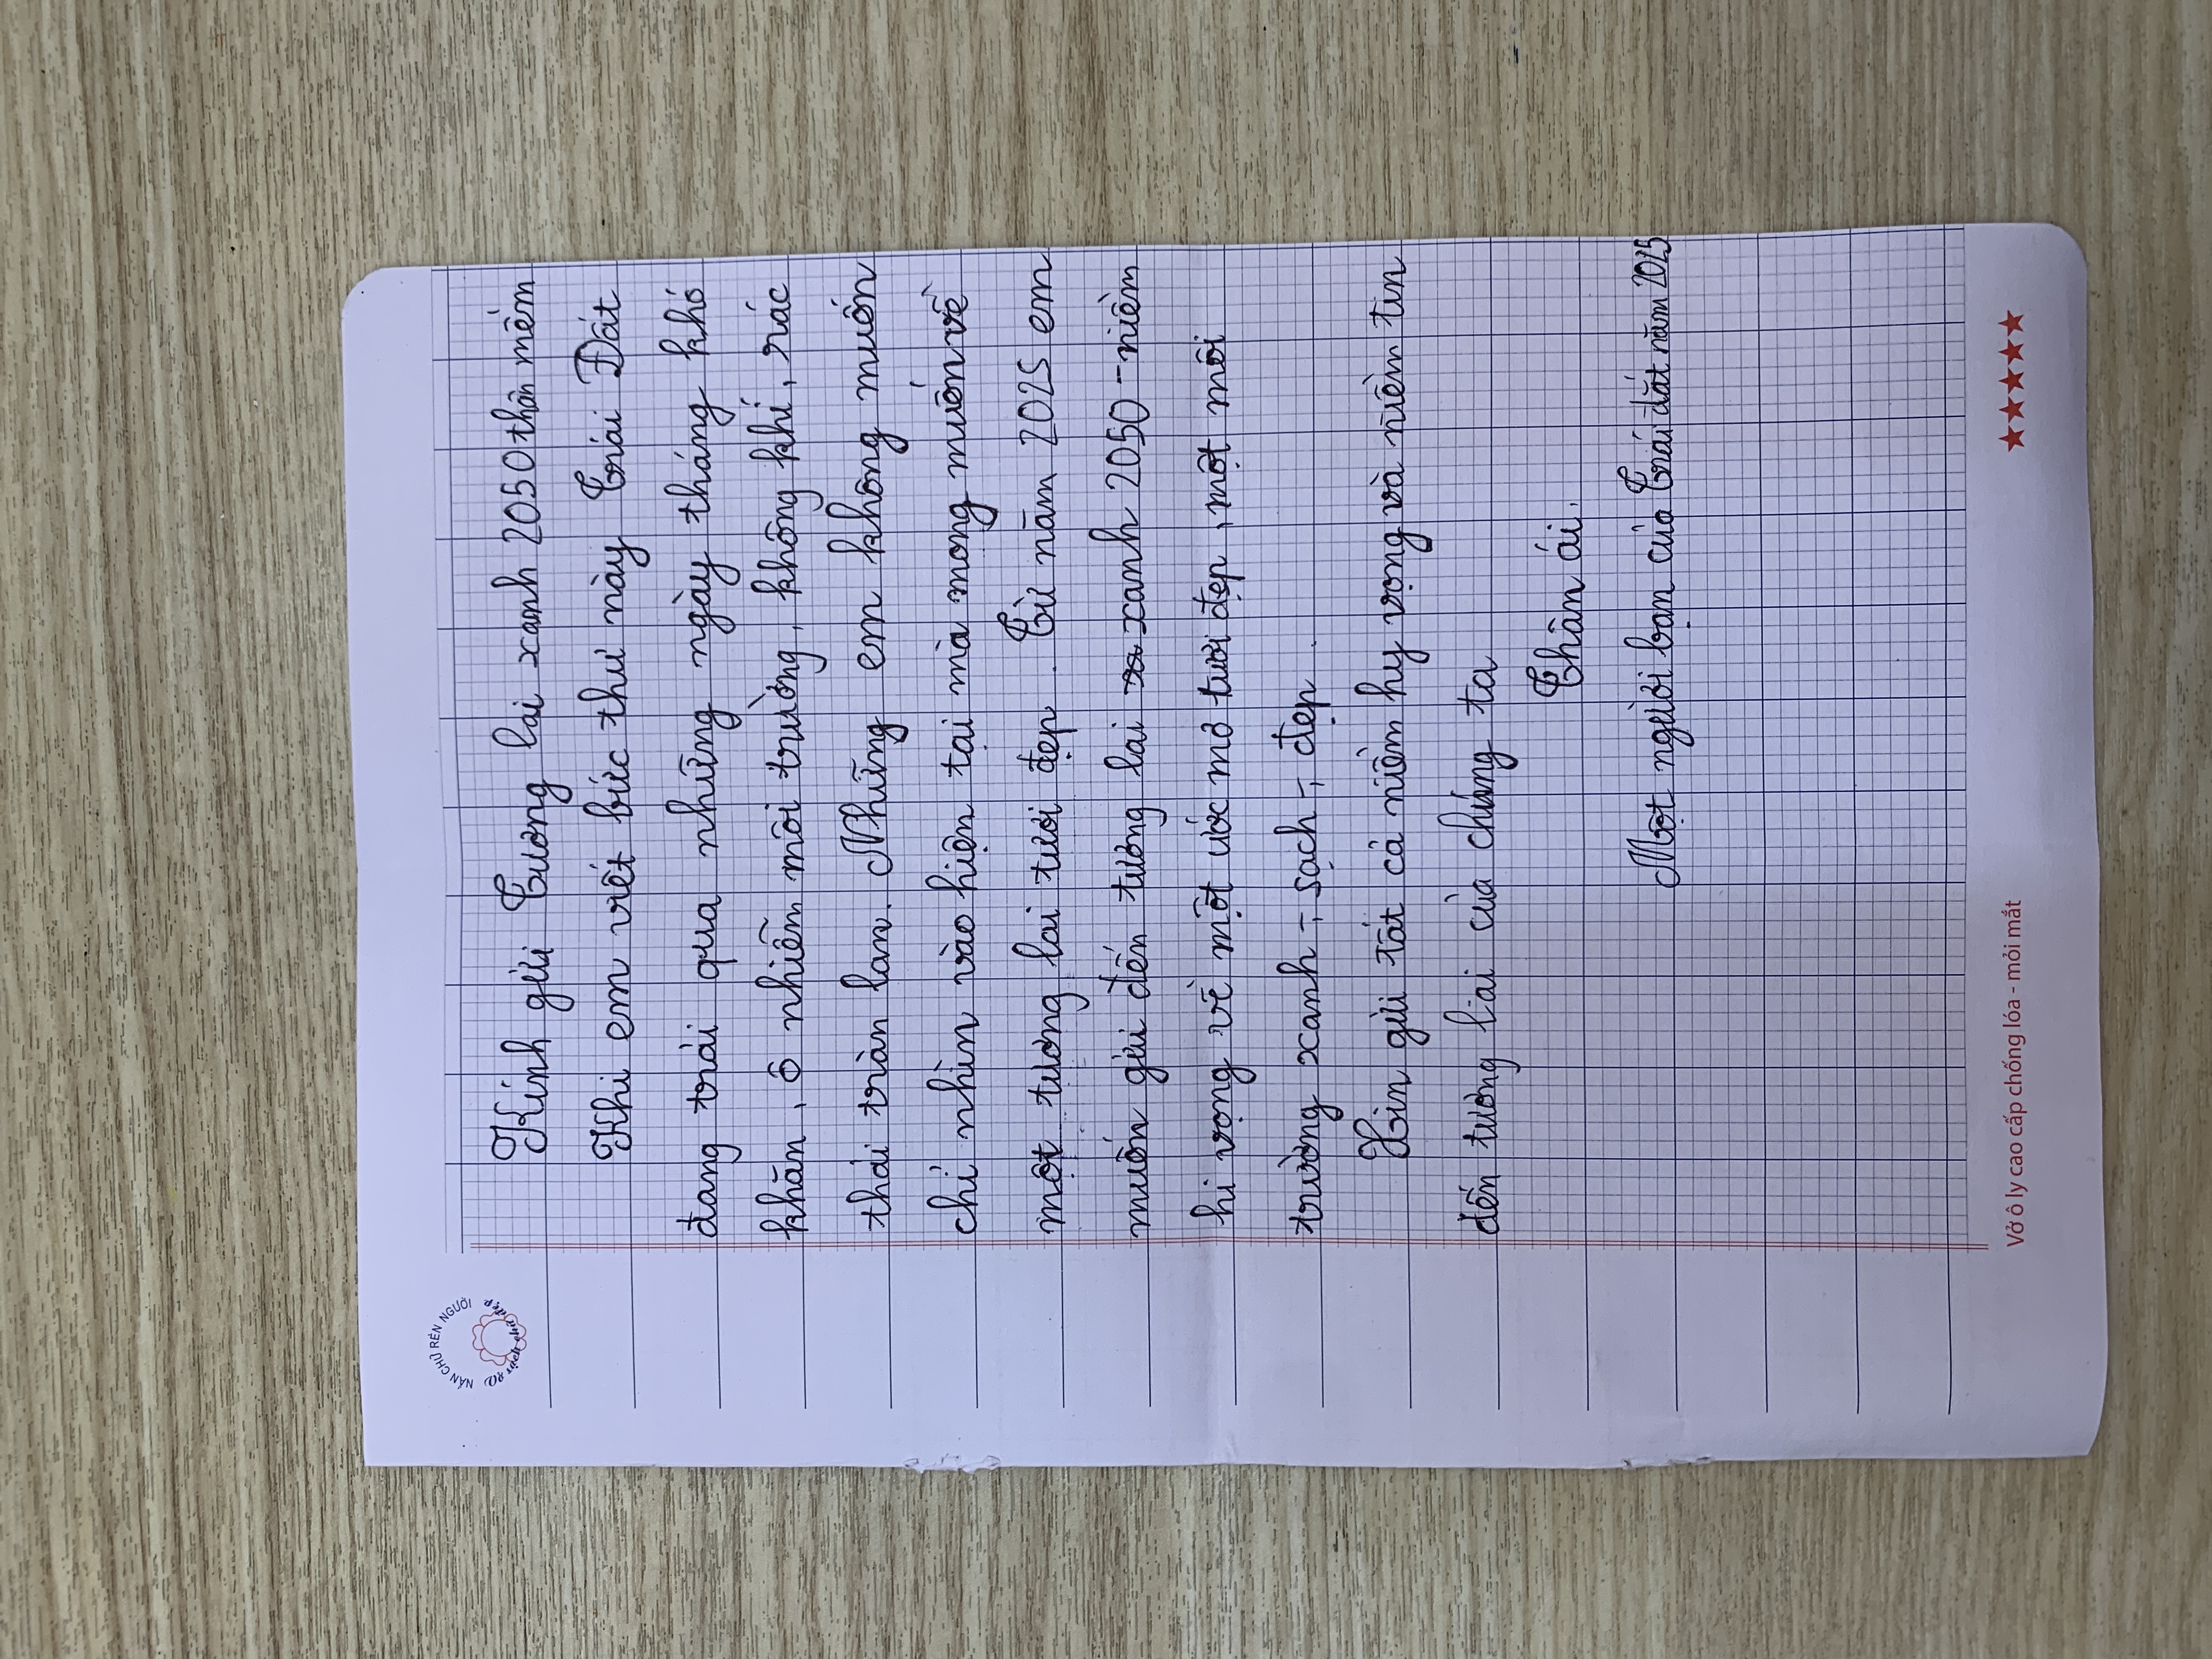 NẮN CHỮ RÈN NGƯỜI
Vở sạch chữ đẹp
Kính gửi Tương lai xanh 2050 thân mềm
Khi em viết bức thư này Trái Đất
đang trải qua những ngày tháng khó
khăn, ô nhiễm môi trường, không khí, rác
thải tràn lan. Những em không muốn
chỉ nhìn vào hiện tại mà mong muốn về
một tương lai tươi đẹp. Từ năm 2025 em
muốn gửi đến tương lai xanh 2050 - niềm
hi vọng về một ước mơ tươi đẹp, một môi
trường xanh -, sạch -, đẹp.
Xin gửi tất cả niềm hy vọng và niềm tin
đến tương lai của chúng ta
Thân ái.
Một người bạn của Trái đất năm 2025
Vở ô ly cao cấp chống lóa - mỏi mắt